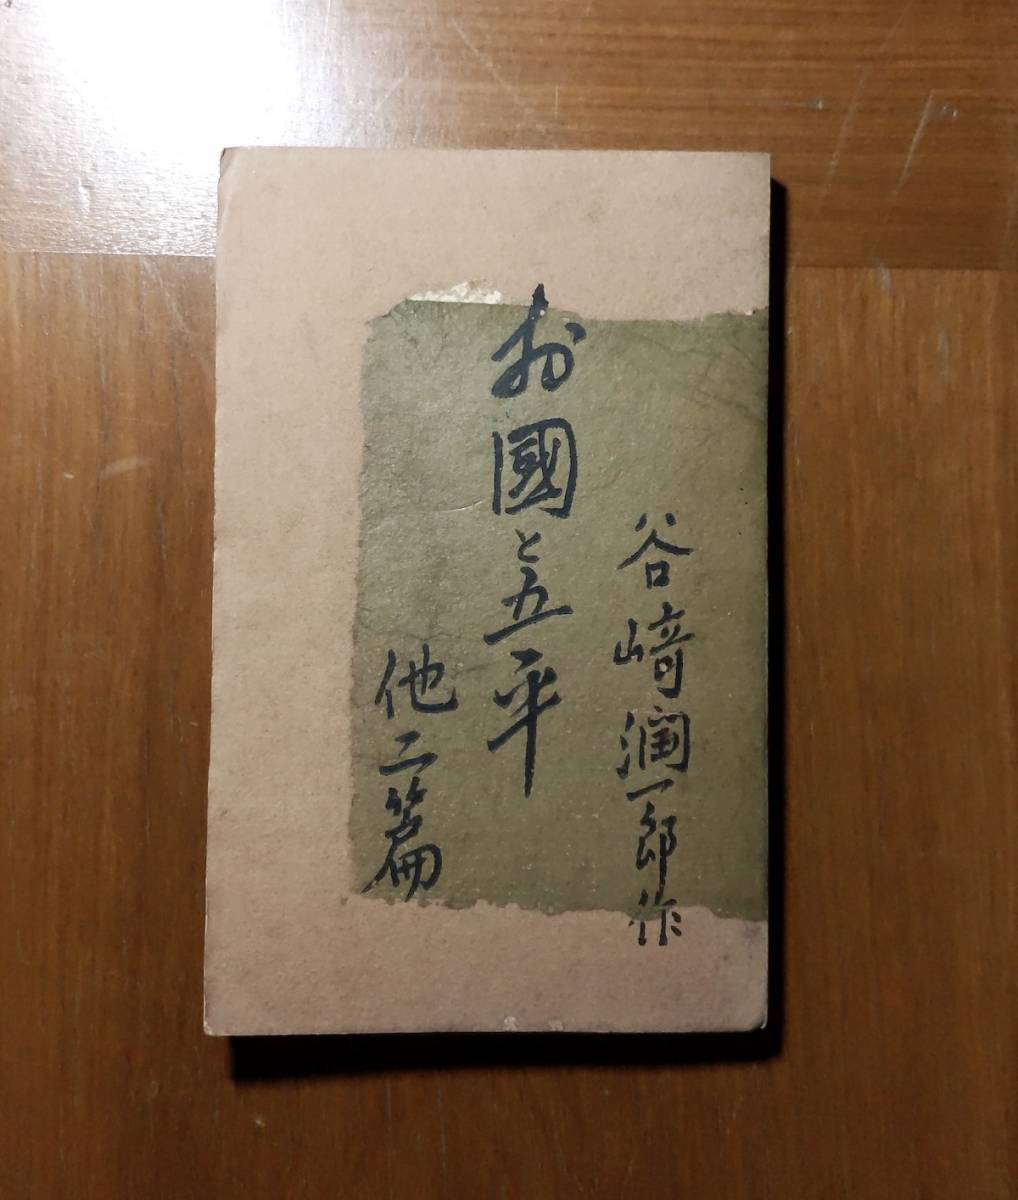 谷崎潤一郎作
お國と五平
他二篇